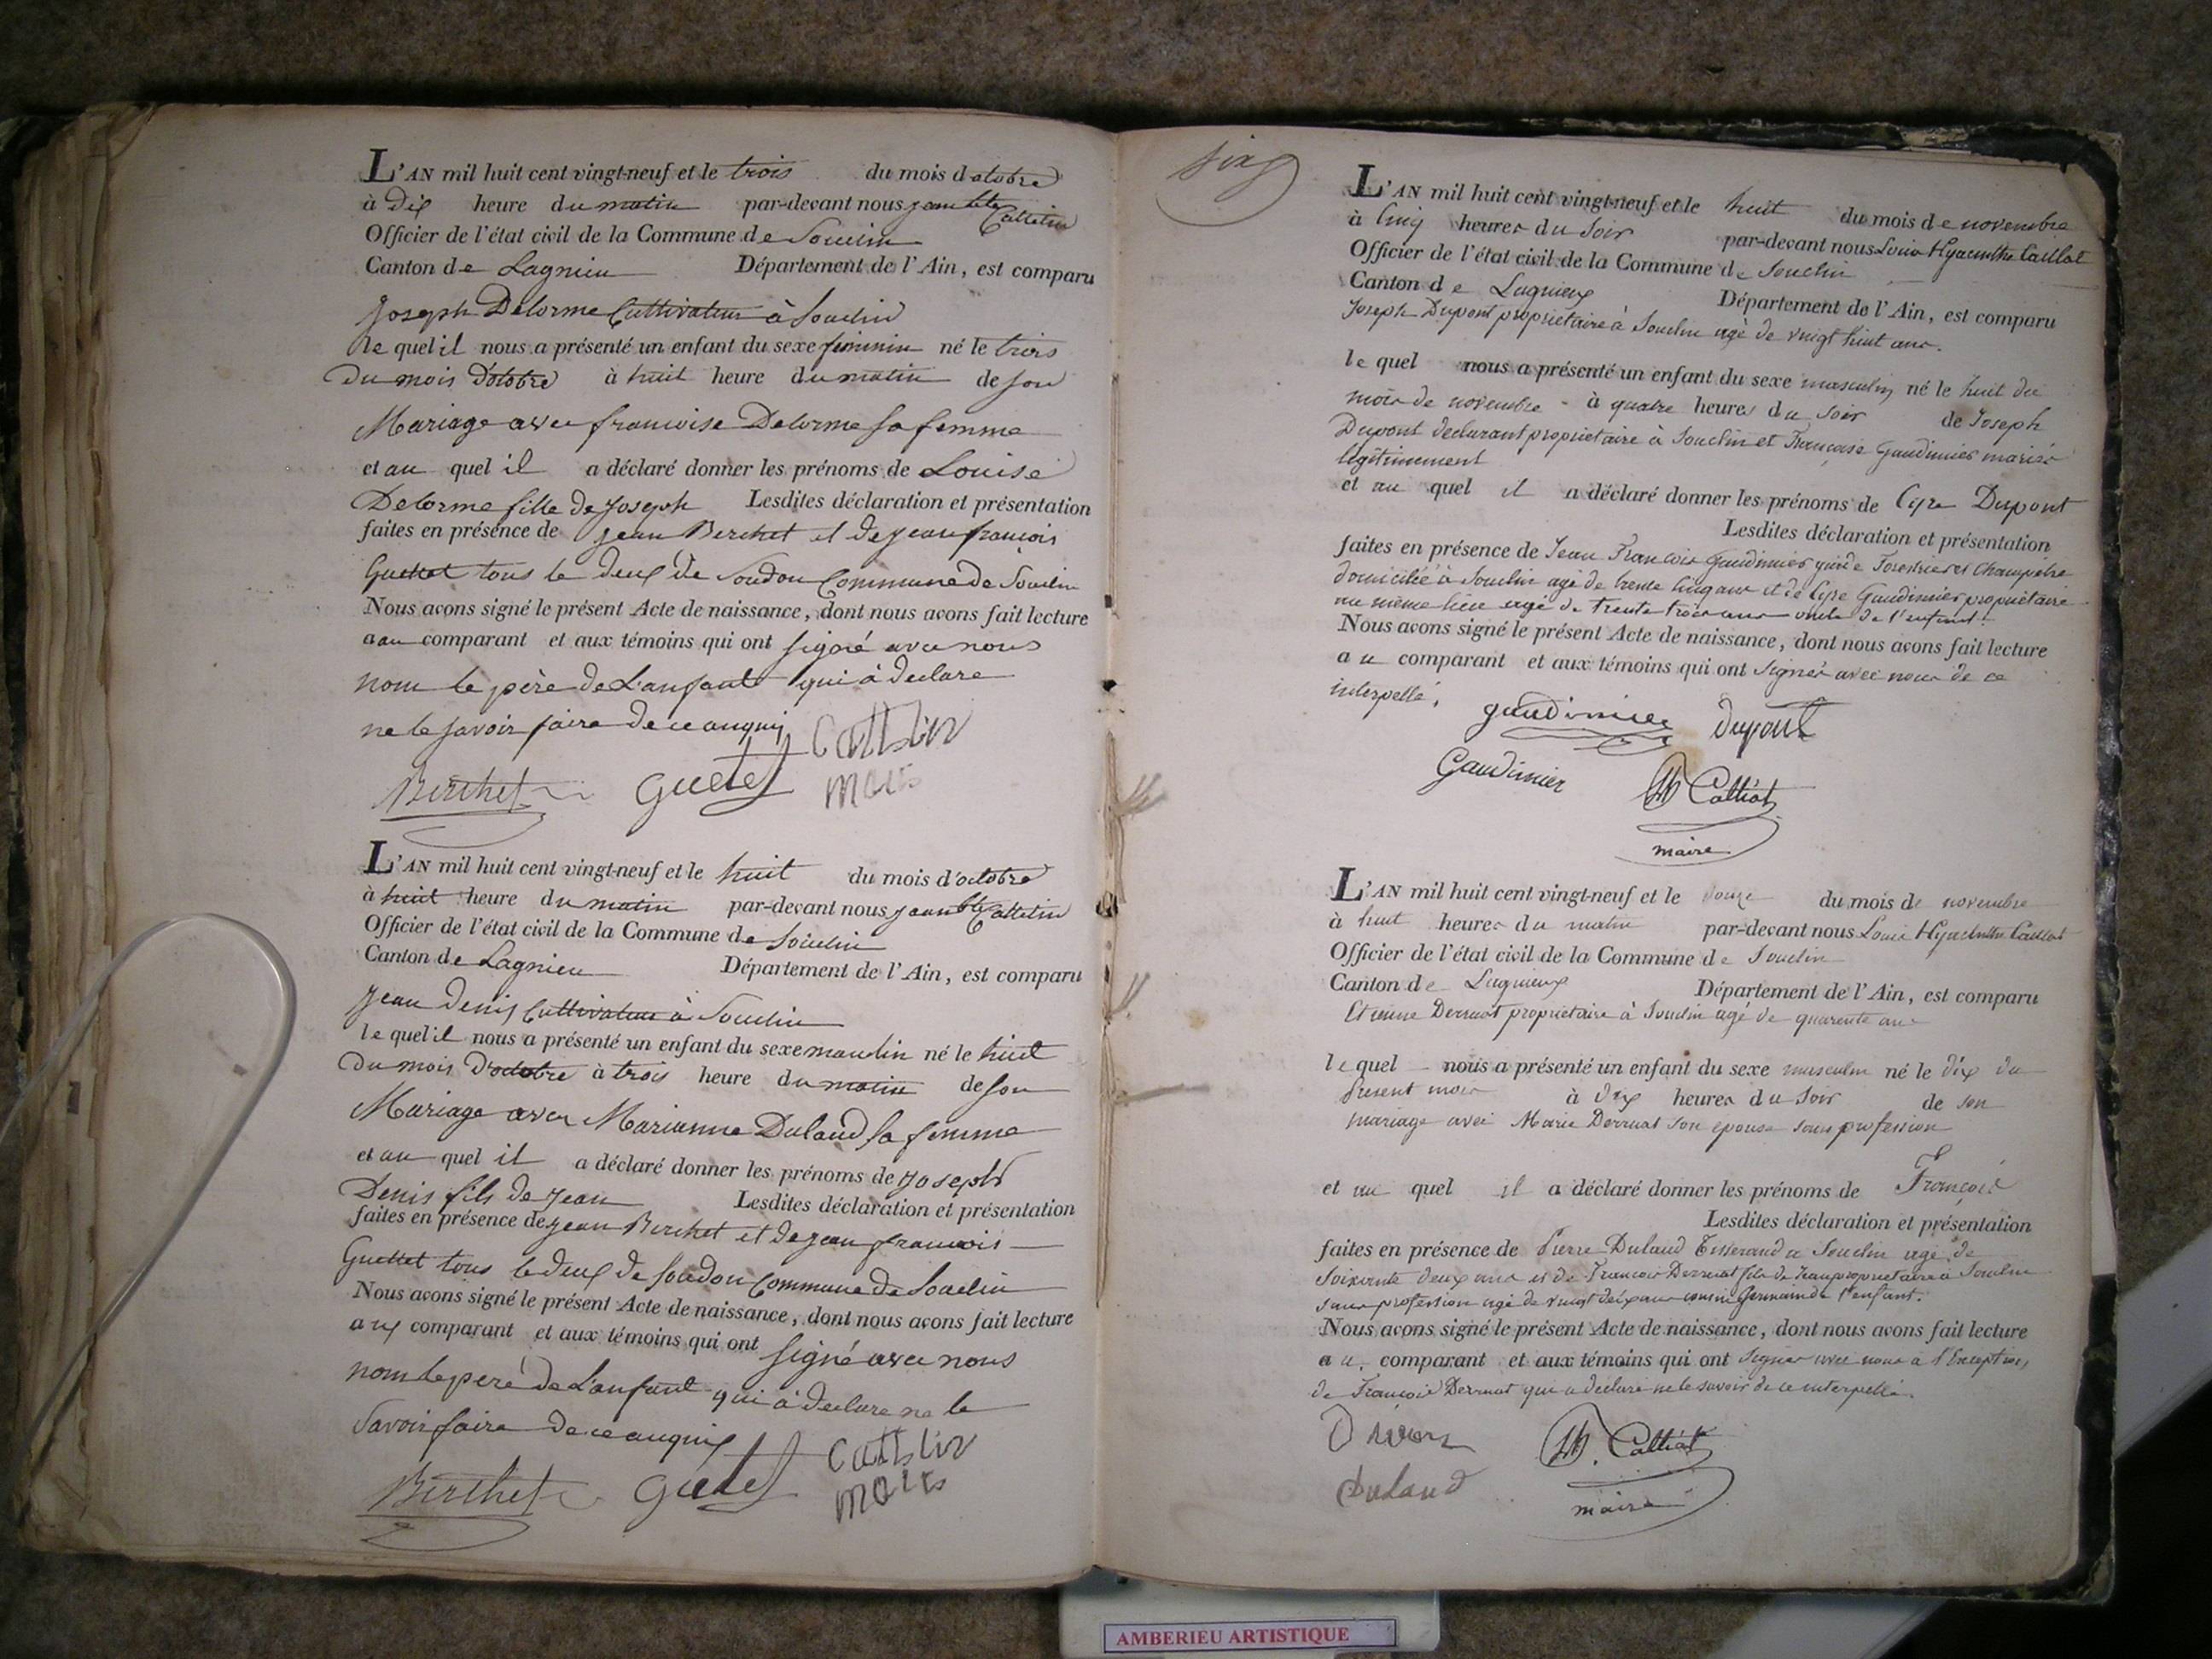 L'AN mil huit cent vingt-neuf et le trois du mois d'otobre
à dix heure du matin par-devant nous jean bte Cattelin
Officier de l'état civil de la Commune de Souclin
Canton de Lagnieu Département de l'Ain, est comparu
Joseph Delorme Cultivateur à Souclin
le quel il nous a présenté un enfant du sexe feminin né le trois
du mois d'otobre à huit heure du matin de son
Mariage avec francoise Delorme sa femme
et au quel il a déclaré donner les prénoms de Louise
Delorme fille de Joseph Lesdites déclaration et présentation
faites en présence de jean Berchet et de jean francois
Guettet tous le deux de Soudon Commune de Souclin
Nous avons signé le présent Acte de naissance, dont nous avons fait lecture
au comparant et aux témoins qui ont signé avec nous
nom le père de L'anfant qui à declare
ne le savoir faire de ce anquij
Cattelin
Berthet Guetet maire
L'AN mil huit cent vingt-neuf et le huit du mois d'octobre
à huit heure du matin par-devant nous jean bte Cattelin
Officier de l'état civil de la Commune de Souclin
Canton de Lagnieu Département de l'Ain, est comparu
jean Denis Cultivateur à Souclin
le quel il nous a présenté un enfant du sexe masculin né le huit
du mois d'octobre à trois heure du matin de son
Mariage avec Marianne Dulaud sa femme
et au quel il a déclaré donner les prénoms de joseph
Denis fils de jean Lesdites déclaration et présentation
faites en présence de jean Berchet et de jean francois
Guettet tous le deux de soudon Commune de Souclin
Nous avons signé le présent Acte de naissance, dont nous avons fait lecture
aux comparant et aux témoins qui ont signé avec nous
nom le pere de L'anfant qui à declare ne le
Savoir faire de ce anquis
Cattelin
Berthet Guetet maire
six
L'AN mil huit cent vingt-neuf et le huit du mois de novembre
à Cinq heures du Soir par-devant nous Louis Hyacinthe Caillat
Officier de l'état civil de la Commune de Souclin
Canton de Lagnieux Département de l'Ain, est comparu
Joseph Dupont propriétaire à Souclin agé de vingt huit ans.
le quel nous a présenté un enfant du sexe masculin né le huit du
mois de novembre à quatre heures du Soir de Joseph
Dupont declarant propriétaire à Souclin et Francoise Gaudimier mariés
légitimement
et au quel il a déclaré donner les prénoms de Cyre Dupont
Lesdites déclaration et présentation
faites en présence de Jean Francois Gaudimier garde Forestier et Champetre
domicilié à Souclin agé de trente Cinq ans et de Cyre Gaudimier propriétaire
au même lieu agé de Trente trois ans oncle de l'enfant.
Nous avons signé le présent Acte de naissance, dont nous avons fait lecture
au comparant et aux témoins qui ont signés avec nous de ce
interpellé.
gaudimier Dupont
Gaudimier Calliat
maire
L'AN mil huit cent vingt-neuf et le douze du mois de novembre
à huit heures du matin par-devant nous Louis Hyacinthe Caillat
Officier de l'état civil de la Commune de Souclin
Canton de Lagnieux Département de l'Ain, est comparu
Etienne Derruat propriétaire à Souclin agé de quarente ans
le quel nous a présenté un enfant du sexe masculin né le dix du
Présent mois à dix heures du Soir de son
mariage avec Marie Derruat son epouse sans profession
et au quel il a déclaré donner les prénoms de François
Lesdites déclaration et présentation
faites en présence de Pierre Dulaud Tisserand a Souclin agé de
Soixante deux ans et de Francois Derruat fils de Jean propriétaire à Souclin
sans profession agé de vingt deux ans cousin Germain de l'enfant.
Nous avons signé le présent Acte de naissance, dont nous avons fait lecture
au comparant et aux témoins qui ont Signés avec nous à l'Exception
de François Derruat qui a declaré ne le savoir de ce interpellé.
Calliat
Dulaud maire
AMBERIEU ARTISTIQUE